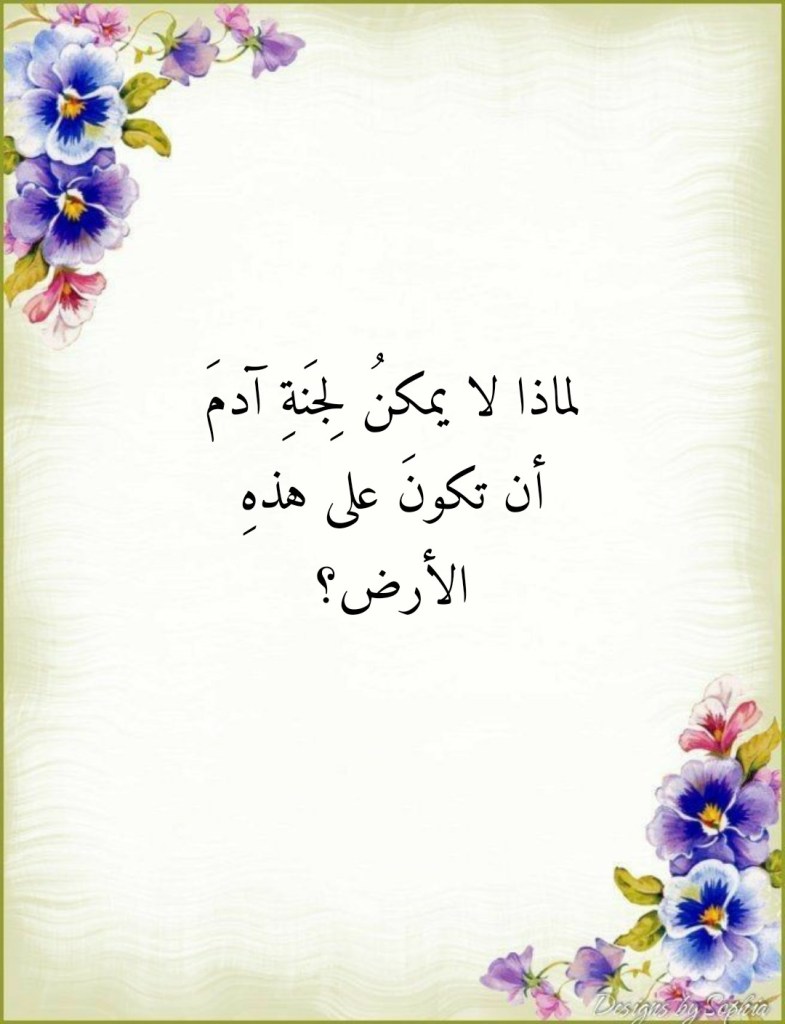 لماذا لا يمكنُ لِجَنَةِ آدمَ
أن تكونَ على هذهِ
الأرض؟
Designs by Sophia